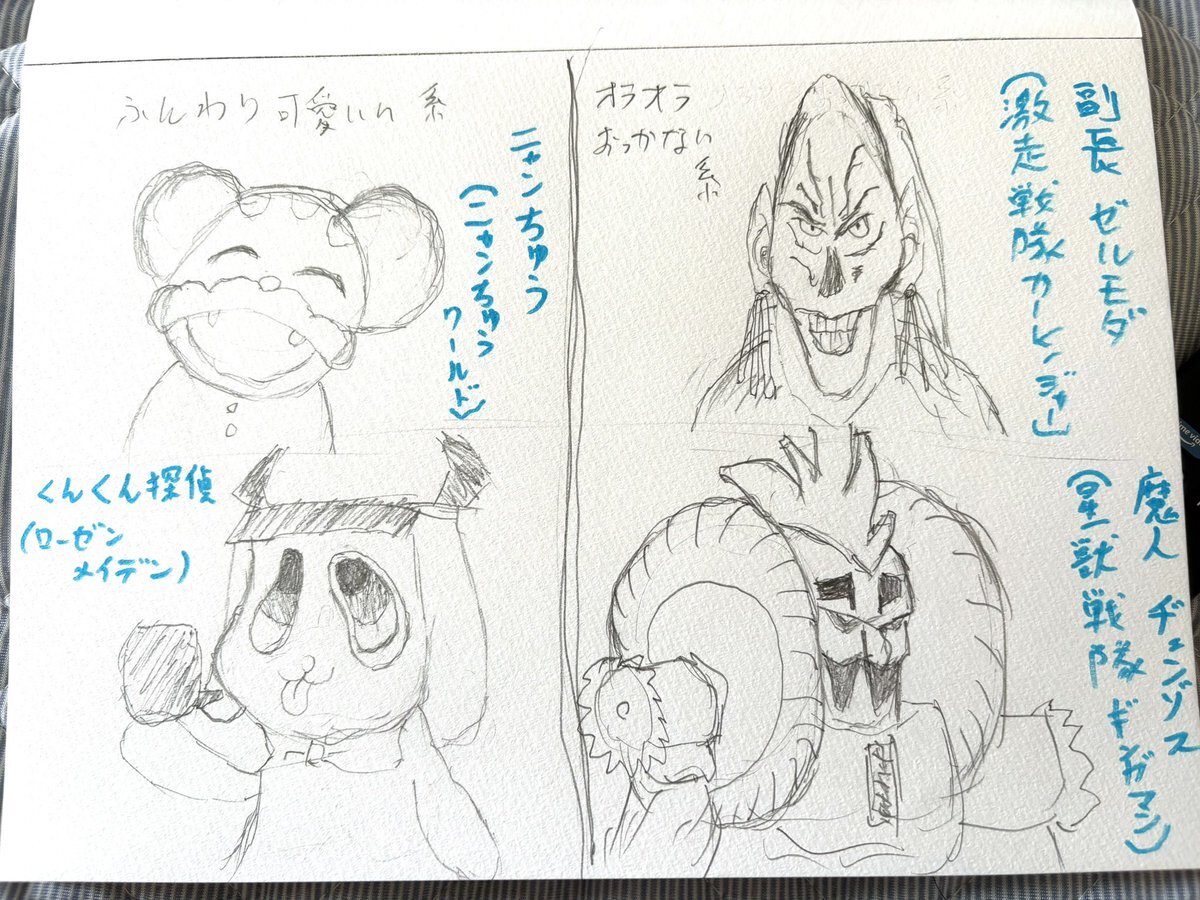 ふんわり可愛いい系
ニャンちゅう
(ニャンちゅう
ワールド)
くんくん探偵
(ローゼン
メイデン)
オラオラ
おっかない
系
副長 ゼルモダ
(激走戦隊カーレンジャー)
魔人 ヂェンゾス
(星獣戦隊ギンガマン)